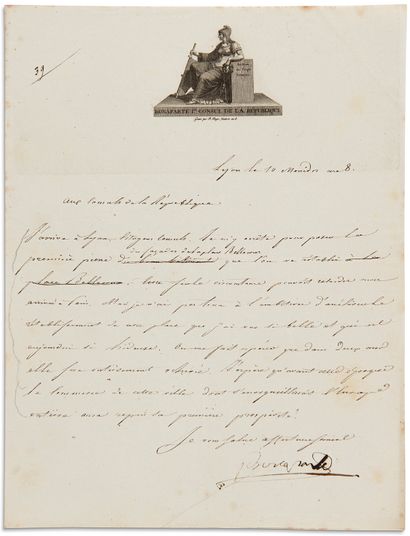 39
BONAPARTE 1er CONSUL DE LA REPUBLIQUE
Lyon le 10 Messidor an 8.
Aux Consuls de la République
J'arrive à Lyon, Citoyens Consuls. Je m'y arrête pour poser la
des façades de la place Bellecour
première pierre que l'on va rétablir
place Bellecour. Cette seule circonstance pouvait retarder mon
arrivée à Paris. Mais je n'ai pas tenu à l'ambition d'accélérer le
rétablissement de cette place que j'ai vue si belle et qui est
aujourd'hui si hideuse. On me fait espérer que dans deux ans
elle sera entièrement achevée. J'espère qu'avant cette époque
le commerce de cette ville dont s'enorgueillissait l'Europe
entière aura repris sa première prospérité.
Je vous salue affectueusement
Bonaparte